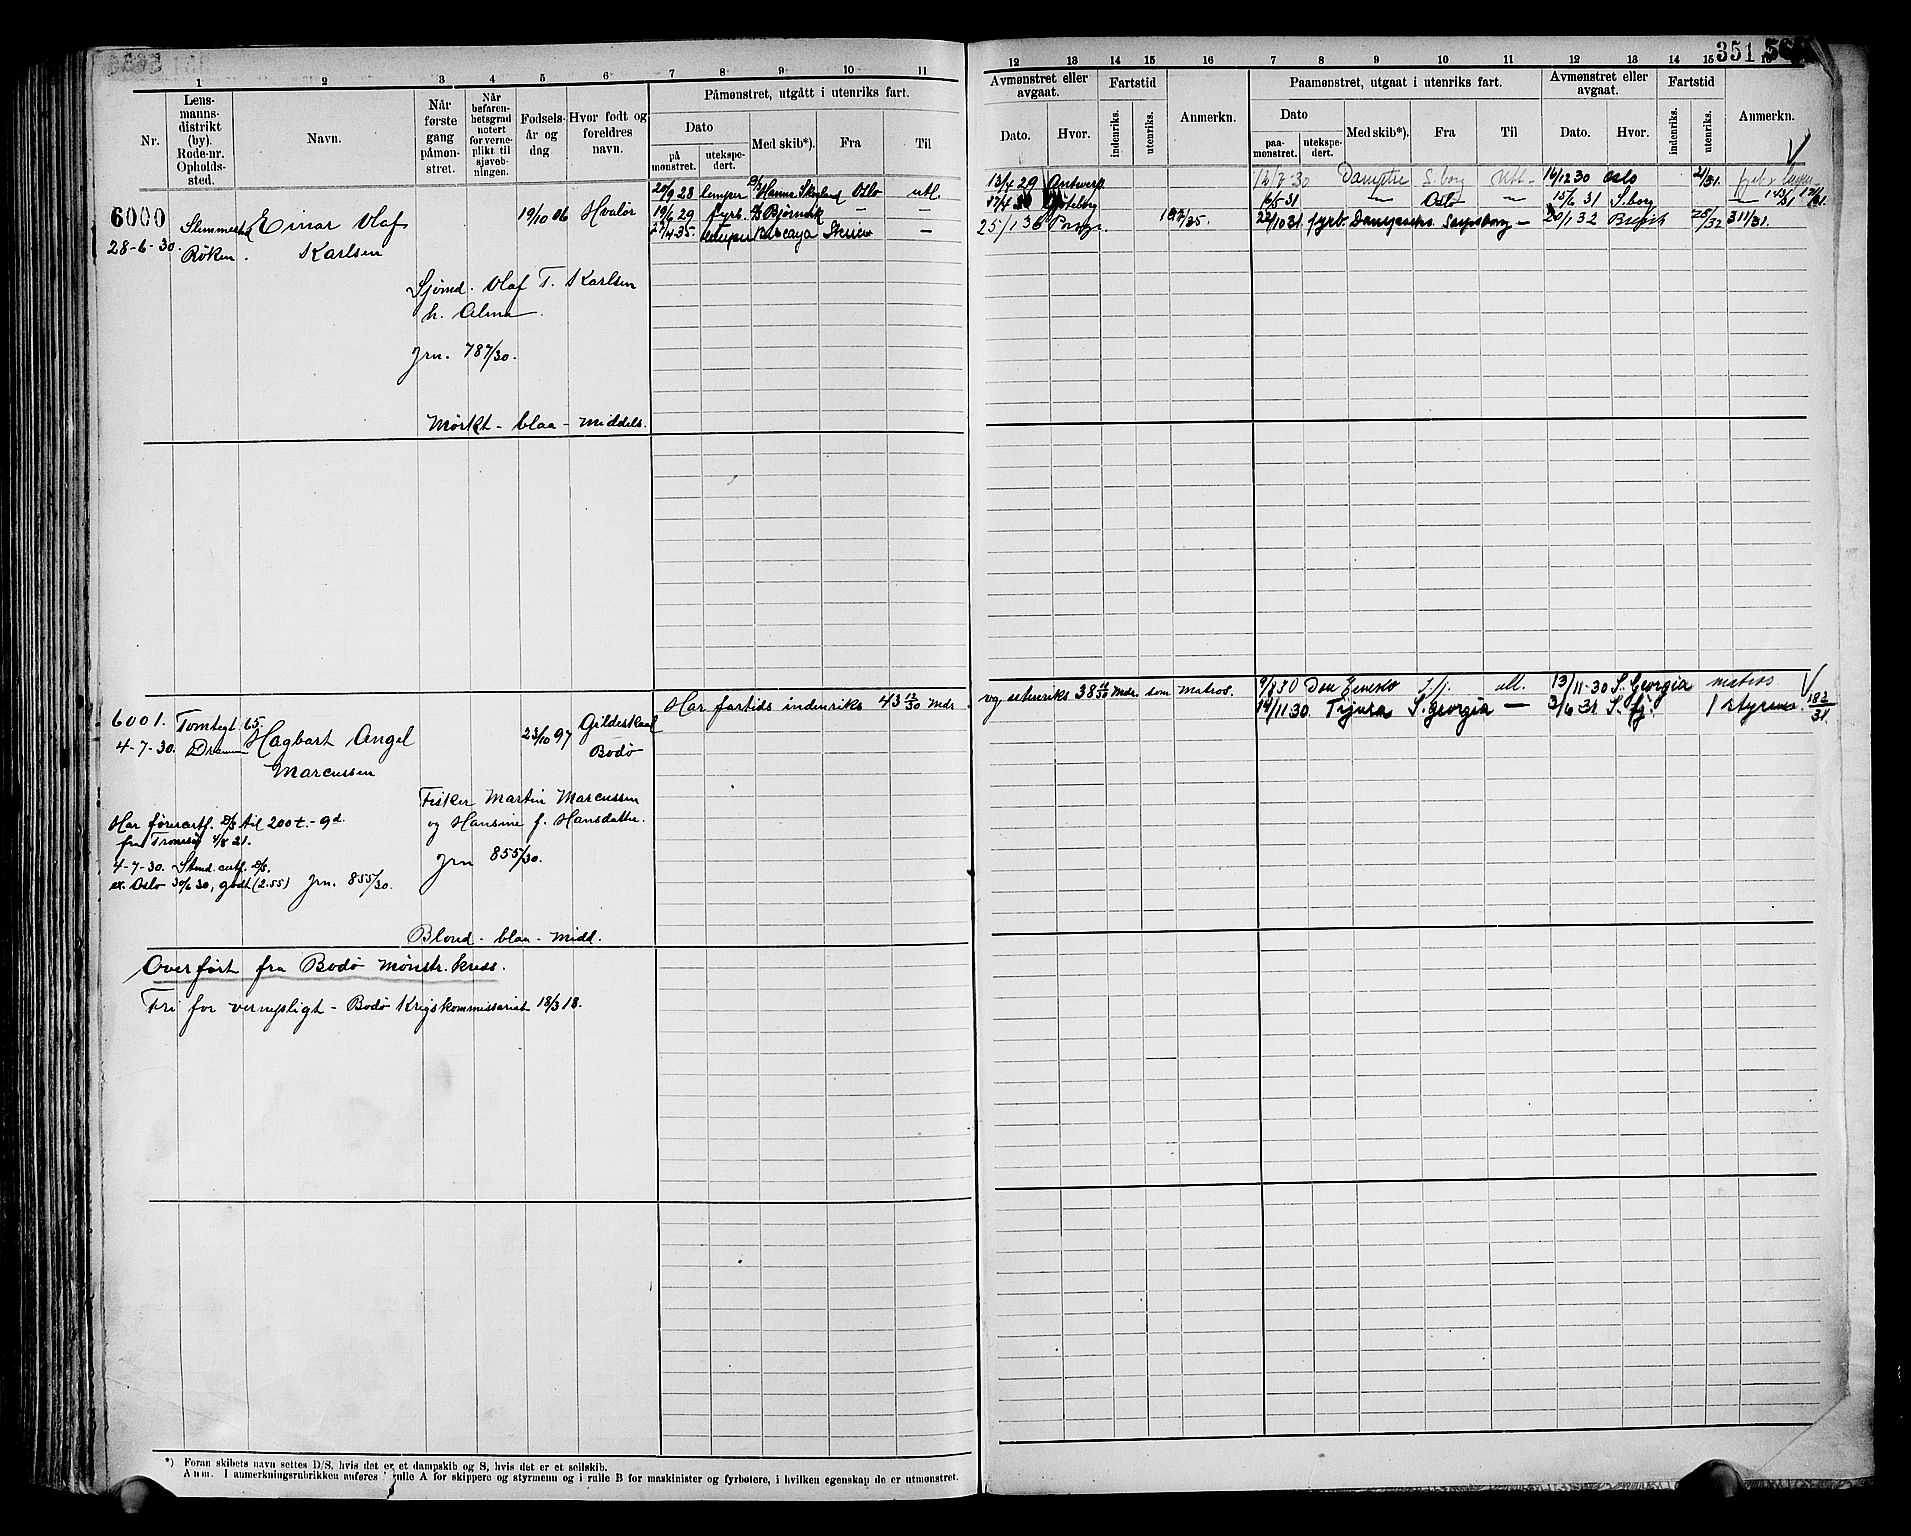 351
1 2 3 4 5 6 7 8 9 10 11
Nr.
Lens-
manns-
distrikt
(by).
Rode-nr.
Opholds-
sted.
Navn.
Når
første
gang
påmøn-
stret.
Når
befaren-
hetsgrad
notert
for verne-
plikt til
sjøveb-
ningen.
Fødsels-
år og
dag
Hvor født og
foreldres
navn.
Påmønstret, utgått i utenriks fart.
Dato
på
mønstret.
utekspe-
dert.
Med skib*).
Fra
Til
12 13 14 15 16 7 8 9 10 11 12 13 14 15
Avmønstret eller
avgaat.
Dato.
Hvor.
Fartstid
indenriks.
utenriks.
Anmerkn.
Paamønstret, utgaat i utenriks fart.
Dato
paa-
mønstret.
utekspe-
dert.
Med skib*).
Fra
Til
Avmønstret eller
avgaat.
Dato.
Hvor.
Fartstid
indenriks.
utenriks.
Anmerkn.
6000
28-6-30.
Røken.
Einar Olaf
Karlsen
19/10 06
Hvaler
Sjømd. Olaf T. Karlsen
h. Alma
Jrn. 787/30.
Mørkt - blaa - middels.
20/9 28 lemper D/S Hanna Skogland Oslo utl.
19/6 29 fyrb. D/S Bjørnvik — —
27/4 35. lemper Biscaya —
13/4 29 Antwerp
17/4 30 Gøteborg
25/1 36
12/7-30 S.borg Utl-
16/12 30 Oslo 2/31.
6/5 31 — Oslo — 15/6 31 S.borg —
22/10 31. fyrb. Sarpsborg — 20/1 32
6001.
4-7-30.
Tomtegt 65.
Dramm
Hagbart Angel
Marcussen
23/10 97
Gildeskaal
Bodø
Fisker Martin Marcussen
og Hansine f. Hansdatter.
Jrn 855/30.
Har førercertf. D/S til 200 t. - 9d.
fra Tromsø 4/8 21.
4-7-30. Stmd. certf. D/S.
ex. Oslo 30/6 30, godt (2.55) Jrn. 855/30.
Blond - blaa - midd.
Har fartids indenriks 43 12/30 mdr.
og utenriks 38 mdr. som matros.
9/8 30 utl. 13/11-30 S. Georgia matros
14/11 30. Tijuca S. Georgia — 3/6 31 S. fj. 1 styrm. 182/31.
Overført fra Bodø Mønstr. kreds.
Fri for vernepligt - Bodø Krigskommissariat 18/3 18.
*) Foran skibets navn settes D/S. hvis det er et dampskib og S, hvis det er et seilskib.
Anm. I anmerkningsrubrikken anføres i rulle A for skippere og styrmenn og i rulle B for maskinister og fyrbøtere, i hvilken egenskap de er utmønstret.